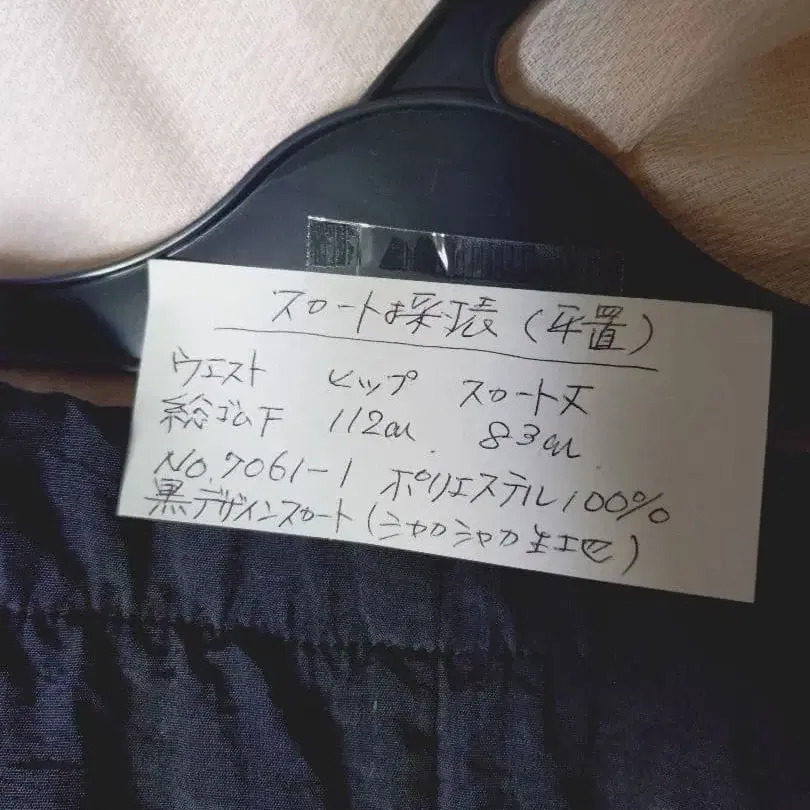 スカート採寸表(平置)
ウエスト ヒップ スカート丈
総ゴム下 112cm 83cm
No.7061-1 ポリエステル100%
黒デザインスカート(シャカシャカ生地)